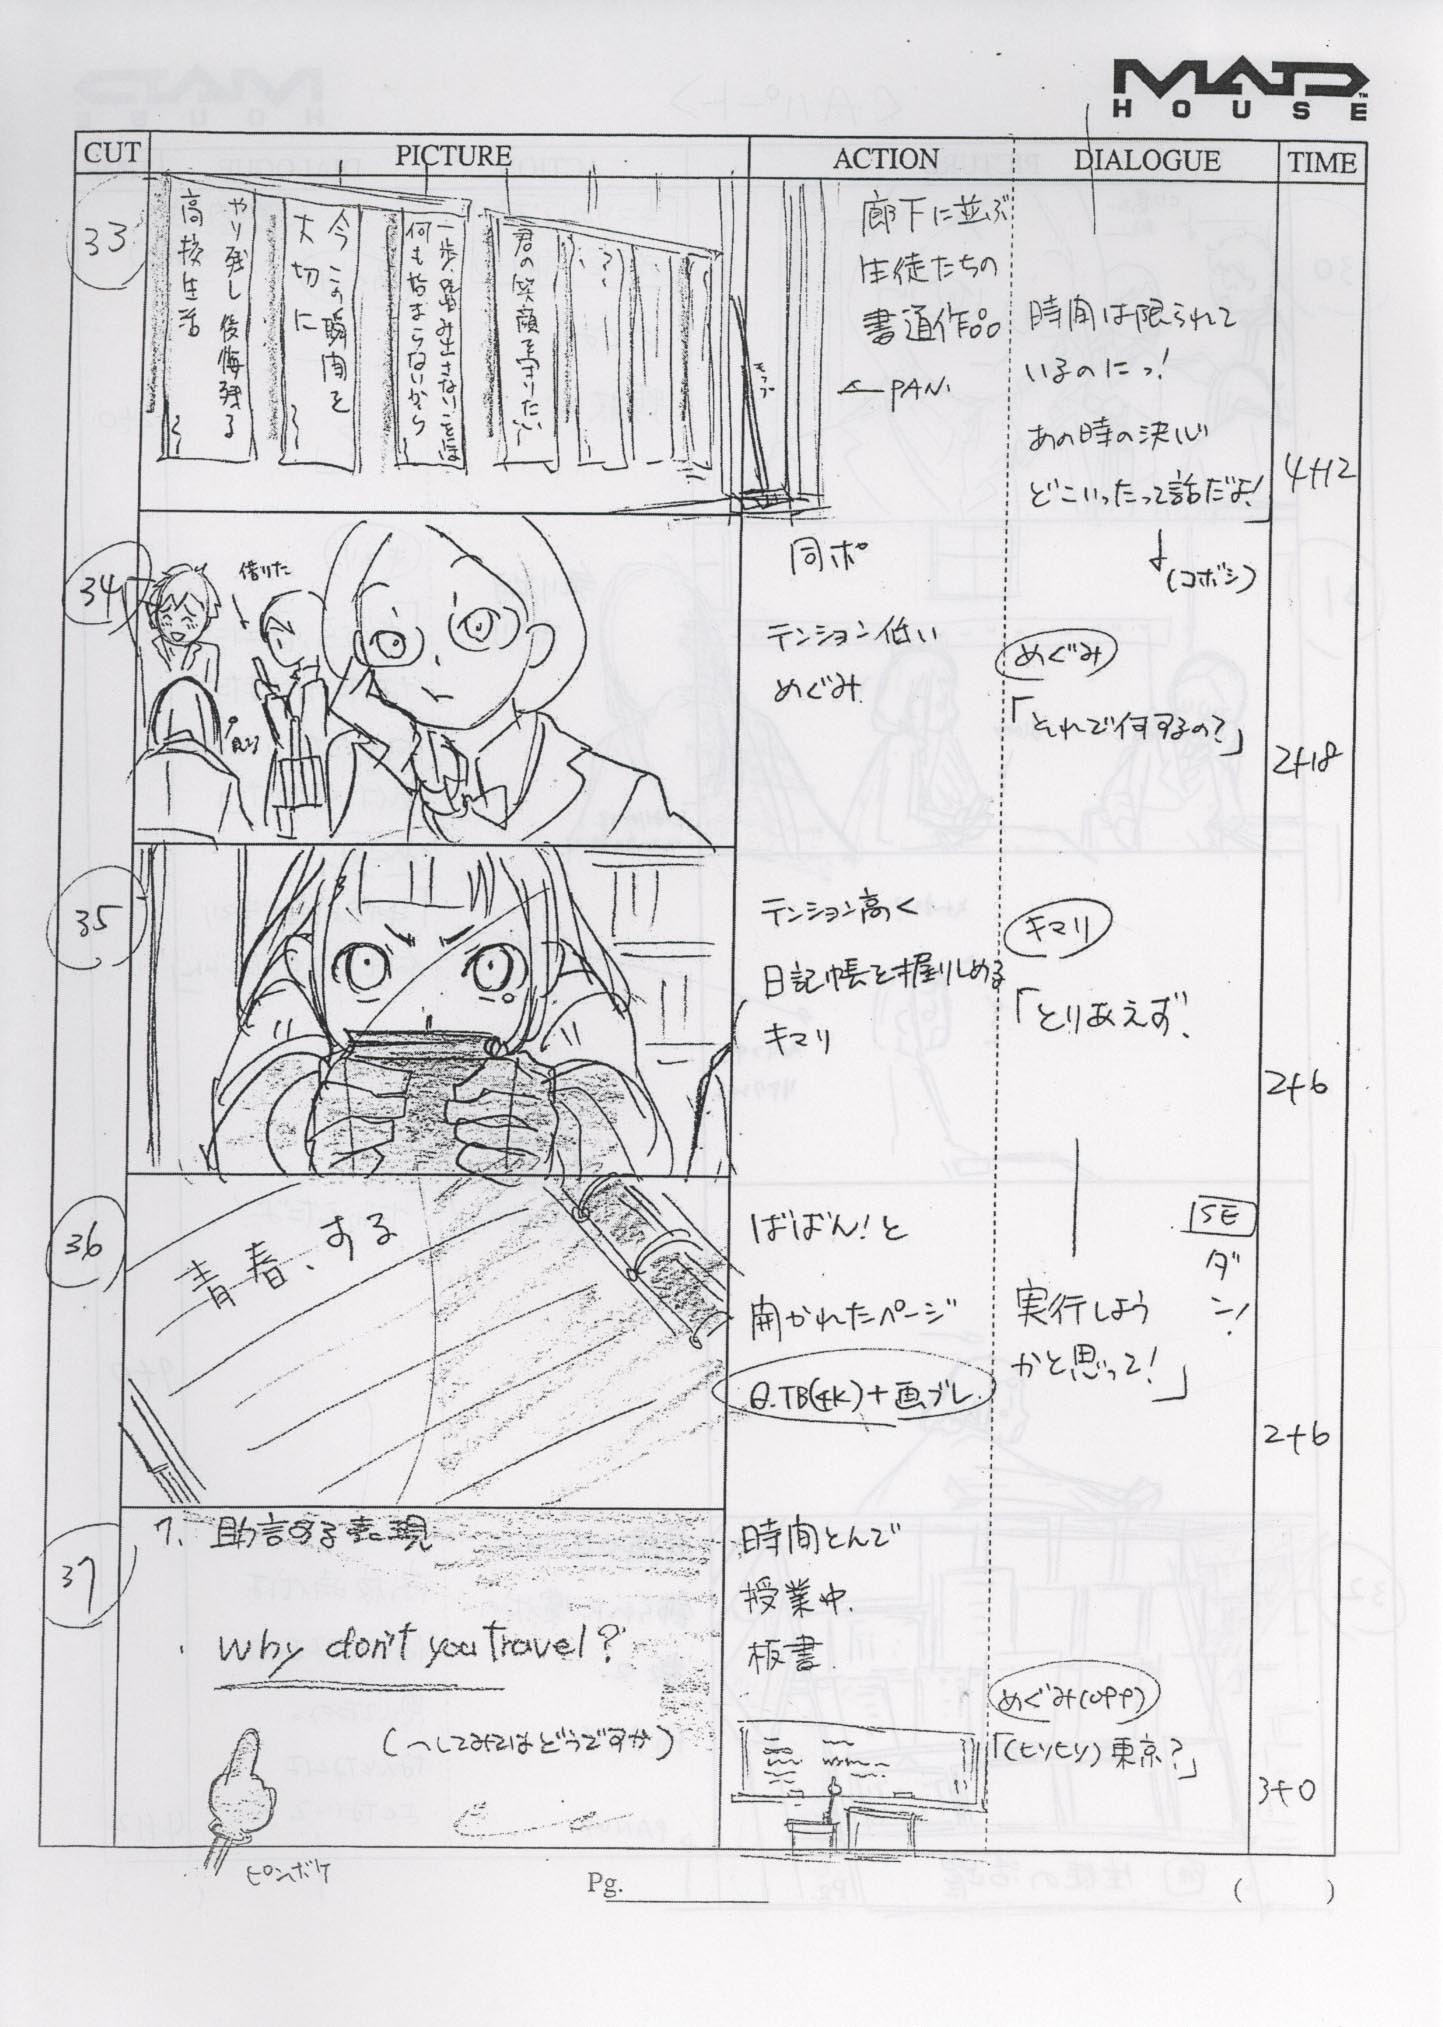 MAD
HOUSE
CUT
PICTURE
ACTION
DIALOGUE
TIME
33
高校生活
やり残し後悔残る
大切に
今この瞬間を
何も始まらないから
一歩踏み出さないことは
君の笑顔を守りたい
廊下に並ぶ
生徒たちの
書道作品
←PAN.
時間は限られて
いるのにっ!
あの時の決心
どこいったって話だよ!」
↓(コボシ)
4+12
34
借りた
同ポ
テンション低い
めぐみ
めぐみ
「それで何するの?」
2+18
35
テンション高く
日記帳を握りしめる
キマリ
キマリ
「とりあえず、
2+6
36
青春、する
ばばん!と
開かれたページ
Q.TB(4K)+画ブレ.
SE
ダン!
実行しよう
かと思って!」
2+6
37
7. 助言する表現
. Why don't you travel?
(〜してみてはどうですか)
ピンボケ
時間とんで
授業中.
板書.
めぐみ(OFF)
「(ヒソヒソ)東京?」
3+0
Pg.
( )